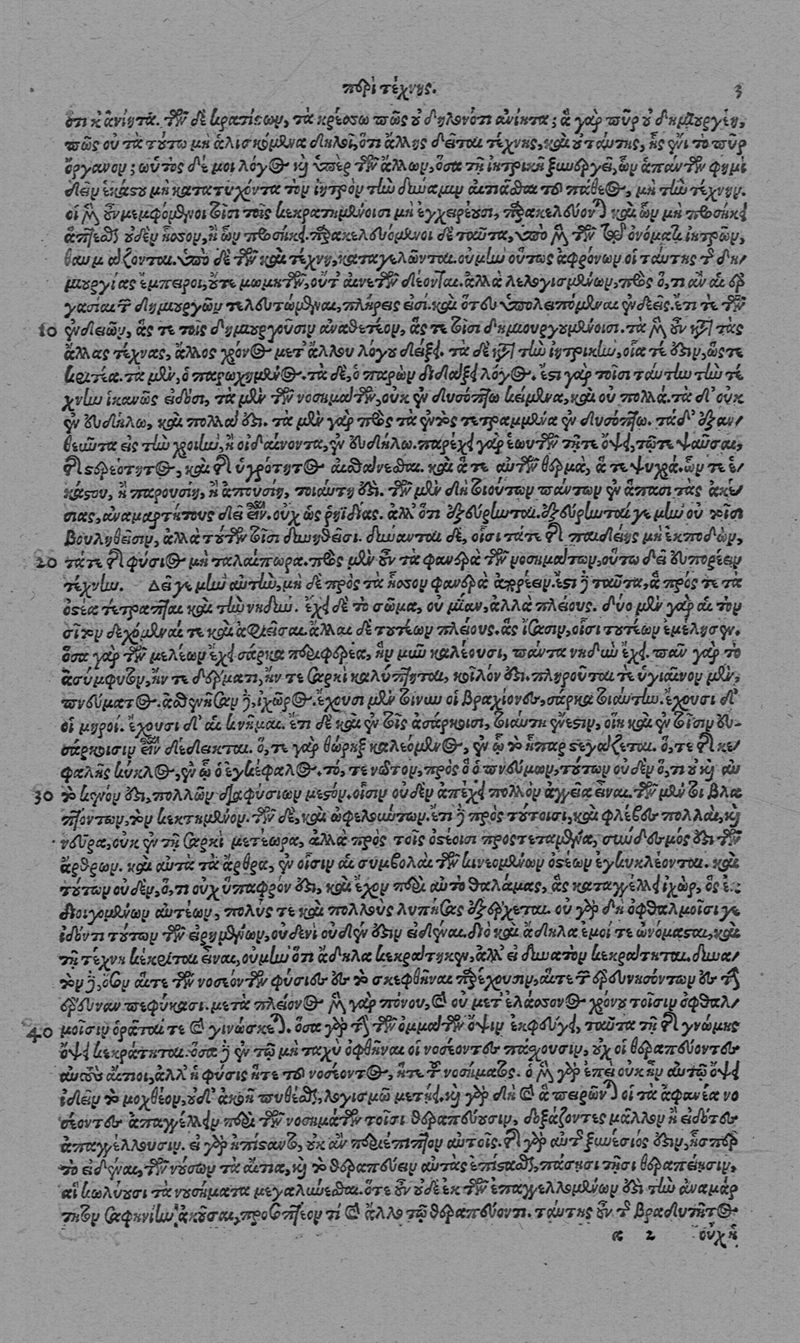 περὶ τέχνης. 3
ὅτι κ̓ ἀνίητα. τῶν δὲ κρατίστων, τὰ κρέσσω πῶς οὐ δηλονότι ἀνίητα; ἃ γὰρ πῦρ οὐ δημιουργέει,
πῶς οὐ τὰ τούτῳ μὴ ἁλισκόμενα δηλοῖ, ὅτι ἄλλης δεῖται τέχνης, καὶ οὐ ταύτης, ἧς ἐνὶ τὸ πῦρ
ὄργανον; ωὗτος δέ μοι λόγος καὶ ὑπὲρ τῶν ἄλλων, ὅσα τῇ ἰητρικῇ ξυνεργεῖ, ὧν ἁπάντων φημὶ
δεῖν ἑκάστου μὴ κατατυχόντα τὸν ἰητρὸν τὴν δύναμιν αἰτιᾶσθαι τοῦ πάθεος, μὴ τὴν τέχνην.
οἱ μὲν οὖν μεμφόμενοι τοῖσι τοῖς κεκρατημένοισι μὴ ἐγχειρέουσι, παρακελεύονται καὶ ὧν μὴ προσήκει
ἅπτεσθαι οὐδὲν ἧσσον, ἢ ὧν προσήκει. παρακελευόμενοι δὲ ταῦτα, ὑπὸ μὲν τῶν τοῦ ὀνόματι ἰητρῶν,
θαυμάζονται. ὑπὸ δὲ τῶν καὶ τέχνῃ, καταγελῶνται. οὐ μὴν οὕτως ἀφρόνων οἱ ταύτης τῆς δη-
μιουργίας ἔμπειροι, οὔτε μωμητῶν, οὔτ' αἰνετῶν δέονται. ἀλλὰ λελογισμένων, πρὸς ὅ, τι ἂν αἱ ἐρ
γασίαι τῶν δημιουργῶν τελευτώμεναι, πλήρεις εἰσί. καὶ ὅτευ ὑπολειπόμεναι ἐνδεεῖς. ἔτι τε τῶν
10 ἐνδειῶν, ἅς τε τοῖς δημιουργοῦσιν ἀναθετέον, ἅς τε τοῖσι δημιουργουμένοισι. τὰ μὲν οὖν κατὰ τὰς
ἄλλας τέχνας, ἄλλος χρόνος μετ' ἄλλου λόγου δείξει. τὰ δὲ κατὰ τὴν ἰητρικὴν, οἷά τέ ἐστιν, ὥς τε
κριτέα. τὰ μὲν, ὁ παρῳχημένος. τὰ δὲ, ὁ παρὼν διδάξει λόγος. ἔστι γὰρ τοῖσι ταύτην τὴν τέ
χνην ἱκανῶς εἰδόσι, τὰ μὲν τῶν νοσημάτων, οὐκ ἐν δυσόπτῳ κείμενα, καὶ οὐ πολλά. τὰ δ' οὐκ
ἐν εὐδήλῳ, καὶ πολλά ἐστι. τὰ μὲν γὰρ πρὸς τὰ ἐντὸς τετραμμένα ἐν δυσόπτῳ. τὰ δ' ἐξαν-
θεῦντα εἰς τὴν χροιὴν, ἢ οἰδαίνοντα, ἐν εὐδήλῳ. παρέχει γὰρ ἑωυτῶν τῇ τε ὄψει, τῷ τε ψαῦσαι,
τῆς στερεότητος, καὶ τῆς ὑγρότητος αἰσθάνεσθαι. καὶ ἅ τε αὐτῶν θερμὰ, ἅ τε ψυχρά. ὧν τε ἑ-
κάστου, ἢ παρουσίῃ, ἢ ἀπουσίῃ, τοιαύτη ἐστί. τῶν μὲν δὴ τοιούτων πάντων ἐν ἅπασι τὰς ἀκέ-
σιας, ἀναμαρτήτους δεῖ εἶναι. οὐχ ὡς ῥηϊδίας. ἀλλ' ὅτι ἐξεύρηνται. ἐξεύρηνταί γε μὴν οὐ τοῖσι
βουληθεῖσιν, ἀλλὰ τούτων τοῖσι δυνηθεῖσι. δύνανται δὲ, οἷσι τά τε τῆς παιδείης μὴ ἐκποδὼν,
20 τά τε τῆς φύσιος μὴ ταλαίπωρα. πρὸς μὲν οὖν τὰ φανερὰ τῶν νοσημάτων, οὕτω δεῖ εὐπορέειν
τέχνην. Δεῖ γε μὴν αὐτὴν, μὴ δὲ πρὸς τὰ ἧσσον φανερὰ ἀπορέειν. ἔστι δὲ ταῦτα, ἃ πρός τε τὰ
ὀστέα τέτραπται καὶ τὴν νηδύν. ἔχει δὲ τὸ σῶμα, οὐ μίαν, ἀλλὰ πλείους. δύο μὲν γὰρ αἱ τὸν
σῖτον δεχόμεναί τε καὶ ἀφιεῖσαι. ἄλλαι δὲ τουτέων πλείους. ἃς ἴσασιν, οἷσι τουτέων ἐμέλησεν.
ὅσα γὰρ τῶν μελέων ἔχει σάρκα περιφερέα, ἣν μῦν καλέουσι, πάντα νηδὺν ἔχει. πᾶν γὰρ τὸ
ἀσύμφυτον, ἤν τε δέρματι, ἤν τε σαρκὶ καλύπτηται, κοῖλόν ἐστι. πληροῦται τε ὑγιαῖνον μὲν,
πνεύματος. ἀσθενῆσαν δὲ, ἰχῶρος. ἔχουσι μὲν τοίνυν οἱ βραχίονες, σάρκα τοιαύτην. ἔχουσι δ'
οἱ μηροί. ἔχουσι δ' αἱ κνῆμαι. ἔτι δὲ καὶ ἐν τοῖς ἀσάρκοισι, τοιαύτη ἔνεστιν, οἵη καὶ ἐν τοῖσιν εὐ-
σάρκοισιν εἶναι δέδεικται. ὅ, τε γὰρ θώρηξ καλεόμενος, ἐν ᾧ τὸ ἧπαρ στεγάζεται. ὅ, τε τῆς κε-
φαλῆς κύκλος, ἐν ᾧ ὁ ἐγκέφαλος. τό, τε νῶτον, πρὸς ὃ ὁ πνεύμων, τούτων οὐδὲν ὅ, τι οὐ καὶ αὐ
30 τὸ κενόν ἐστι, πολλῶν διαφυσίων μεστόν. οἷσιν οὐδὲν ἀπέχει πολλὸν ἀγγεῖα εἶναι. τῶν μέν τι βλα
πτόντων, τὸν κεκτημένον. τῶν δὲ, καὶ ὠφελεύντων. ἔτι δὲ πρὸς τούτοισι, καὶ φλέβες πολλαὶ, καὶ
νεῦρα, οὐκ ἐν τῇ σαρκὶ μετέωρα, ἀλλὰ πρὸς τοῖς ὀστέοισι προστεταμένα, σύνδεσμός ἐστι τῶν
ἄρθρων. καὶ αὐτὰ τὰ ἄρθρα, ἐν οἷσιν αἱ συμβολαὶ τῶν κινεομένων ὀστέων ἐγκυκλέονται. καὶ
τούτων οὐδὲν, ὅ, τι οὐχ ὕπαφρόν ἐστι, καὶ ἔχον περὶ αὐτὸ θαλάμας, ἃς καταγγέλλει ἰχὼρ, ὃς ἐκ
διοιγομένων αὐτέων, πολύς τε καὶ πολλοὺς λυπήσας ἐξέρχεται. οὐ γὰρ δὴ ὀφθαλμοῖσί γε
ἰδόντι τούτων τῶν εἰρημένων, οὐδενὶ οὐδὲν ἔστιν εἰδέναι. διὸ καὶ ἄδηλα ἐμοί τε ὠνόμασται, καὶ
τῇ τέχνῃ κέκριται εἶναι, οὐ μὴν ὅτι ἄδηλα κεκράτηκεν, ἀλλ' εἰ δυνατὸν κεκράτηται. δυνα-
τὸν δὲ, ὅσον αἵ τε τῶν νοσεόντων φύσιες ἐς τὸ σκεφθῆναι παρέχουσιν, αἵ τε τῶν ἐρευνησόντων ἐς τὴν
ἔρευναν πεφύκασι. μετὰ πλείονος μὲν γὰρ πόνου, καὶ οὐ μετ' ἐλάσσονος χρόνου τοῖσιν ὀφθαλ-
40 μοῖσιν ὁρᾶταί τε καὶ γινώσκεται. ὅσα γὰρ τὴν τῶν ὀμμάτων ὄψιν ἐκφεύγει, ταῦτα τῇ τῆς γνώμης
ὄψει κεκράτηται. ὅσα δὲ ἐν τῷ μὴ ταχὺ ὀφθῆναι οἱ νοσέοντες πάσχουσιν, οὐχ οἱ θεραπεύοντες
αὐτοὺς αἴτιοι, ἀλλ' ἡ φύσις ἥ τε τοῦ νοσέοντος, ἥ τε τοῦ νοσήματος. ὁ μὲν γὰρ ἐπεὶ οὐκ ἦν αὐτῷ ὄψει
ἰδεῖν τὸ μοχθέον, οὐδ' ἀκοῇ πυθέσθαι, λογισμῷ μετῄει, καὶ γὰρ δὴ καὶ ἃ πειρῶνται οἱ τὰ ἀφανέα νο
σέοντες ἀπαγγέλλειν περὶ τῶν νοσημάτων τοῖσι θεραπεύουσιν, δοξάζοντες μᾶλλον ἢ εἰδότες
ἀπαγγέλλουσιν. εἰ γὰρ ἠπίσταντο, οὐκ ἂν περιέπιπτον αὐτοῖς. τῆς γὰρ αὐτῆς ξυνέσιός ἐστιν, ἧσπερ
τὸ εἰδέναι, τῶν νούσων τὰ αἴτια, καὶ τὸ θεραπεύειν αὐτὰς ἐπίστασθαι, πάσῃσι τῇσι θεραπείῃσιν,
αἳ κωλύουσι τὰ νοσήματα μεγαλύνεσθαι. ὅτε οὖν οὐδὲ ἐκ τῶν ἐπαγγελλομένων ἐστὶ τὴν ἀναμάρ
τητον σαφηνίην ἀκοῦσαι, προσοπτέον τι καὶ ἄλλο τῷ θεραπεύοντι. ταύτης οὖν τῆς βραδυτῆτος
a 2 οὐχ ἡ